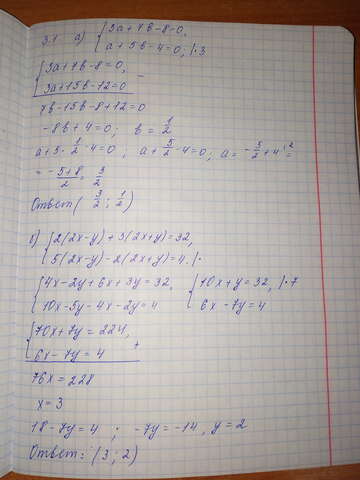 3.1 а) {3a+7b-8=0,
a+5b-4=0; |·3
{3a+7b-8=0,
3a+15b-12=0 -
7b-15b-8+12=0
-8b+4=0; b=1/2
a+5·1/2-4=0; a+5/2-4=0; a=-5/2+4^{12}=
=-5+8/2=3/2
Ответ(3/2;1/2)
б) {2(2x-y)+3(2x+y)=32,
5(2x-y)-2(2x+y)=4.|·
{4x-2y+6x+3y=32, {10x+y=32, |·7
10x-5y-4x-2y=4 6x-7y=4
{70x+7y=224,
6x-7y=4 +
76x=228
x=3
18-7y=4; -7y=-14, y=2
Ответ: (3;2)